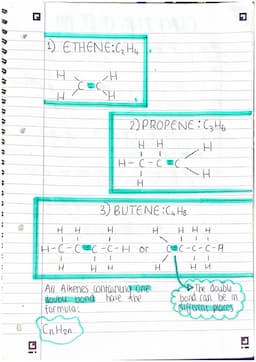 1) ETHENE: C₂H₄
H H
C = C
H H
2) PROPENE: C₃H₆
H H H
H - C - C = C
H H
3) BUTENE: C₄H₈
H H H H H H H
H - C - C = C - C - H or C = C - C - C - H
H H H H H H
All Alkenes containing one
double bond have the
formula:
CnH2n
The double
bond can be in
different places